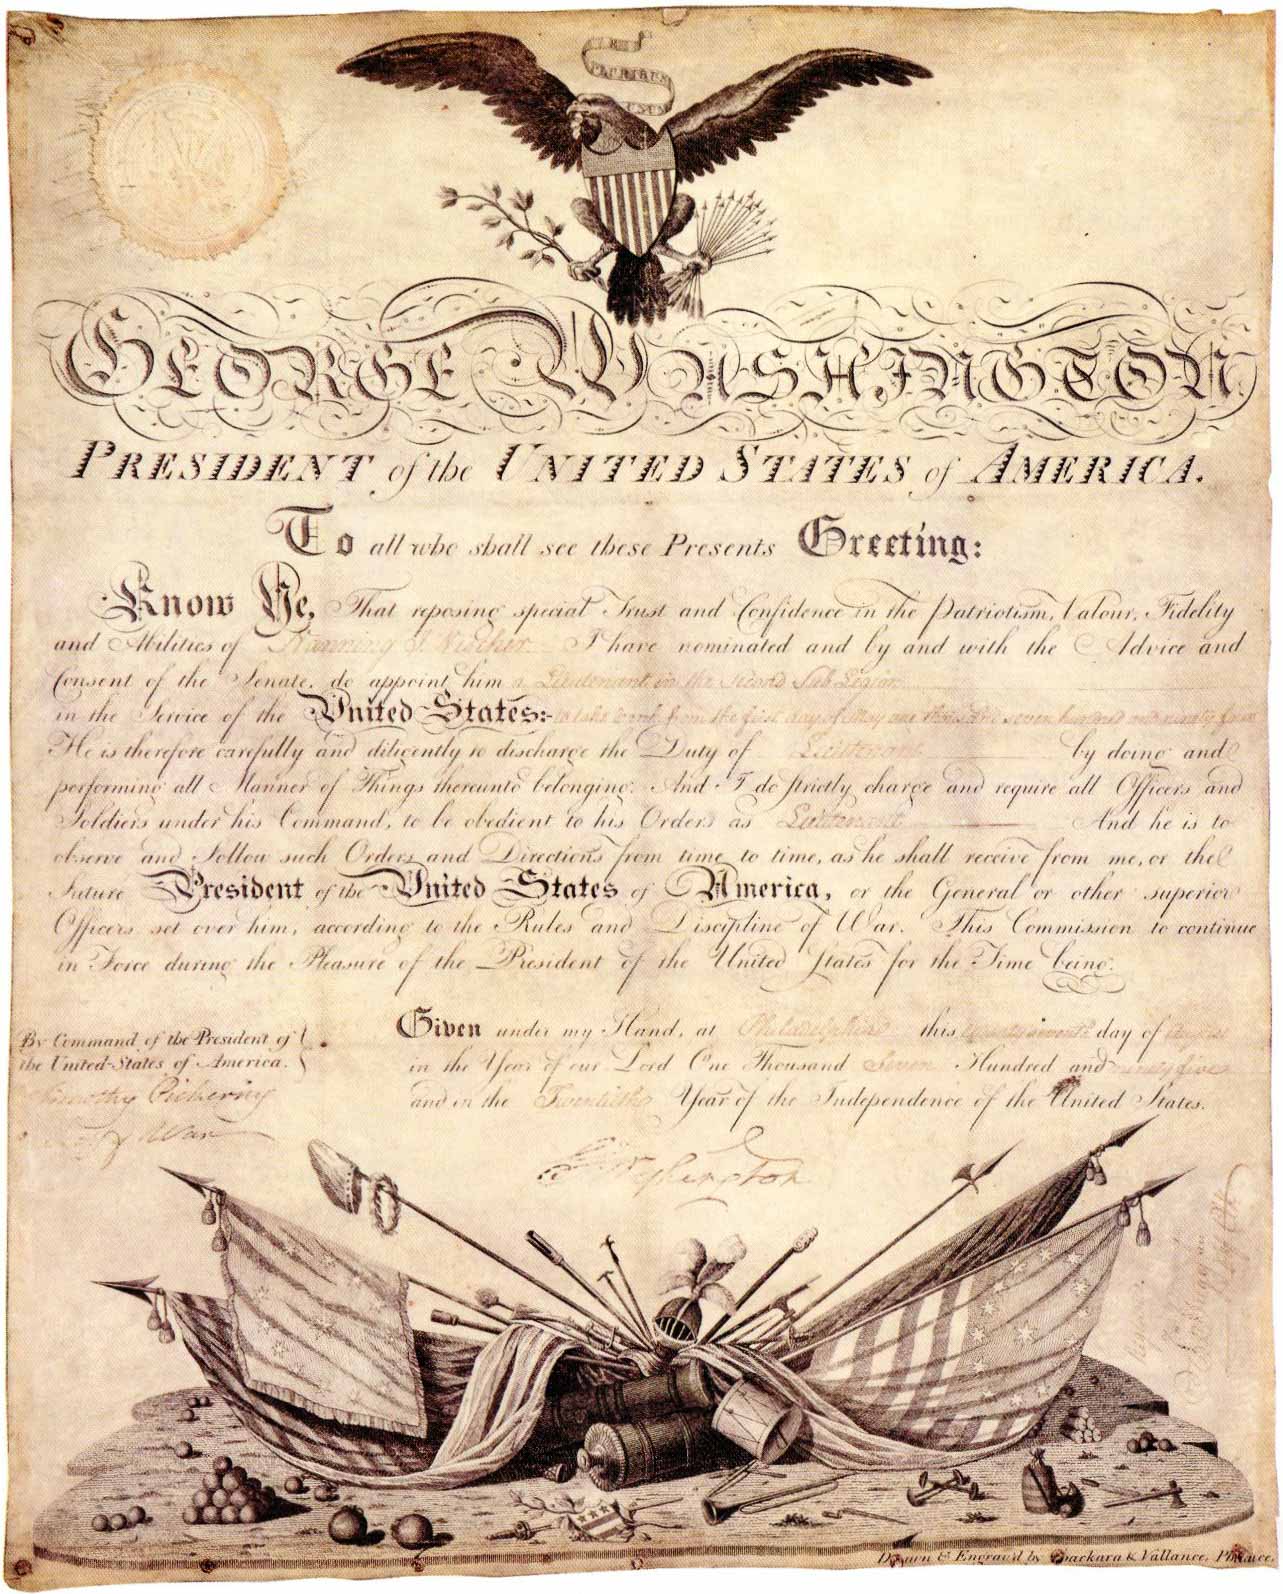 E
PLURIBUS
UNUM
GEORGE WASHINGTON
PRESIDENT of the UNITED STATES of AMERICA.
To all who shall see these Presents Greeting:
Know Ye, That reposing special Trust and Confidence in the Patriotism, Valour, Fidelity
and Abilities of Nanning J. Vischer I have nominated and by and with the Advice and
Consent of the Senate, do appoint him a Lieutenant in the Second Sub Legion
in the Service of the United States:- to take rank from the first day of May one thousand seven hundred and ninety four
He is therefore carefully and diligently to discharge the Duty of Lieutenant by doing and
performing all Manner of Things thereunto belonging. And I do strictly charge and require all Officers and
Soldiers under his Command, to be obedient to his Orders as Lieutenant And he is to
observe and follow such Orders and Directions from time to time, as he shall receive from me, or the
future President of the United States of America, or the General or other superior
Officers set over him, according to the Rules and Discipline of War. This Commission to continue
in Force during the Pleasure of the President of the United States for the Time being.
Given under my Hand, at Philadelphia this twenty seventh day of
in the Year of our Lord One Thousand Seven Hundred and ninety five
and in the Twentieth Year of the Independence of the United States.
By Command of the President of
the United States of America.
Timothy Pickering
of War
G Washington
Drawn & Engrav'd by Thackara & Vallance,